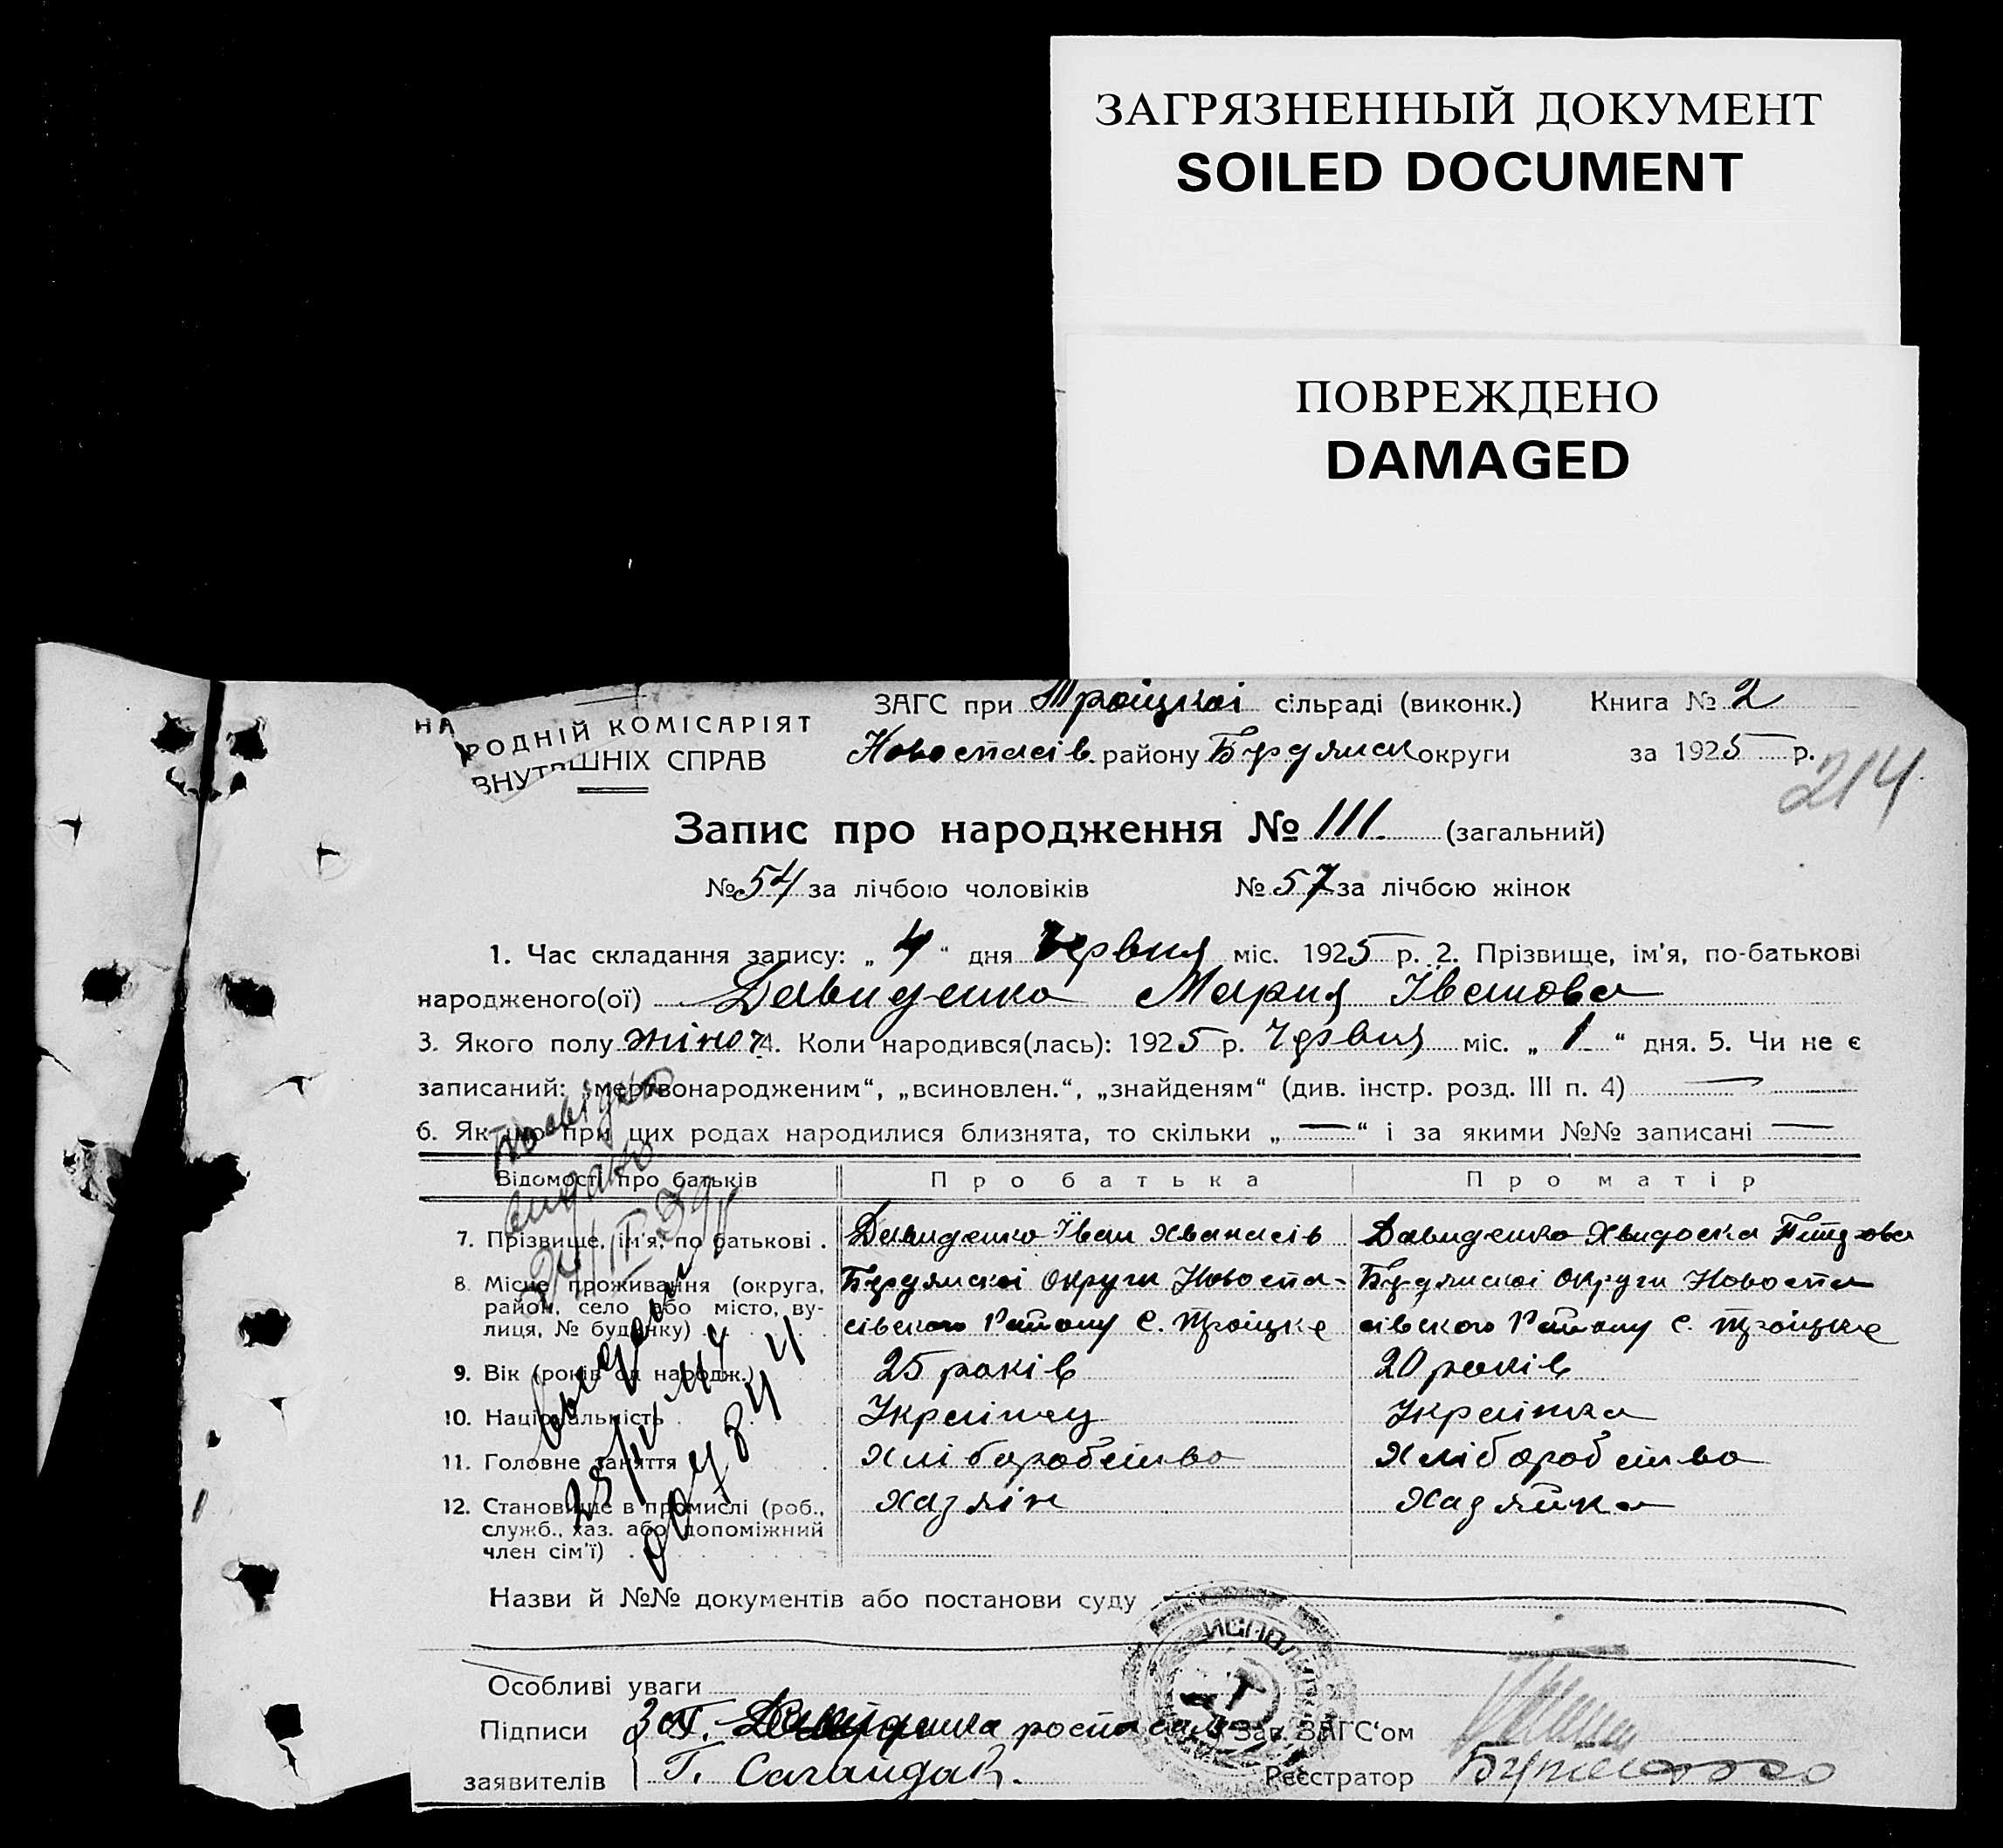 ЗАГРЯЗНЕННЫЙ ДОКУМЕНТ
SOILED DOCUMENT
ПОВРЕЖДЕНО
DAMAGED
НАРОДНІЙ КОМІСАРІЯТ
ВНУТРІШНІХ СПРАВ
ЗАГС при Троіцкоі сільраді (виконк.) Книга № 2
Новоспасів. району Бердянск округи за 1925 р.
214
Запис про народження № 111. (загальний)
№ 54 за лічбою чоловіків № 57 за лічбою жінок
1. Час складання запису: „ 4 “ дня червня міс. 1925 р. 2. Прізвище, ім'я, по-батькові
народженого(ої) Давиденко Мария Івановa
3. Якого полу жіноч 4. Коли народився(лась): 1925 р. червня міс. „ 1 “ дня. 5. Чи не є
записаний: „мертвонародженим“, „всиновлен.“, „знайденям“ (див. інстр. розд. III п. 4) —
6. Якщо при цих родах народилися близнята, то скільки „ — “ і за якими №№ записані —
Відомості про батьків Про батька Про матір
7. Прізвище, ім'я, по батькові . Давиденко Іван Хванасів Давиденко Хвидоска Петрова
8. Місце проживання (округа, район, село або місто, вулиця, № будинку) . . .
Бердянскоі Округи Новоспа-
сівского Району С. Троіцке
Бердянскоі Округи Новоспа
сівского Району С. Троіцке
9. Вік (років од народж.) 25 років 20 років
10. Національність . Украінец Украінка
11. Головне заняття . Хліборобство Хліборобство
12. Становище в промислі (роб., служб., хаз. або допоміжний член сім'ї) .
Хазяін Хадяйка
посвідка
видано
24/II 39р
выдан
25/IV 44
Назви й №№ документів або постанови суду
ИСПОЛ
Особливі уваги
Підписи За Г. Давиденка роспасалс Зав. ЗАГС‘ом
заявителів Г. Сагайдак. Реєстратор